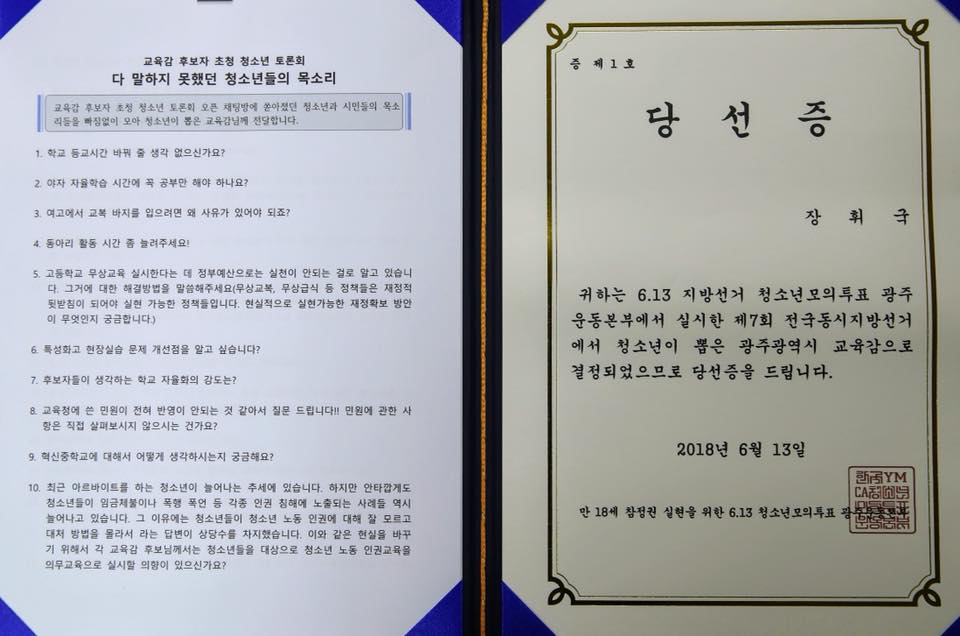 교육감 후보자 초청 청소년 토론회
다 말하지 못했던 청소년들의 목소리
교육감 후보자 초청 청소년 토론회 오픈 채팅방에 쏟아졌던 청소년과 시민들의 목소
리들을 빠짐없이 모아 청소년이 뽑은 교육감님께 전달합니다.
1. 학교 등교시간 바꿔 줄 생각 없으신가요?
2. 야자 자율학습 시간에 꼭 공부만 해야 하나요?
3. 여고에서 교복 바지를 입으려면 왜 사유가 있어야 되죠?
4. 동아리 활동 시간 좀 늘려주세요!
5. 고등학교 무상교육 실시한다는 데 정부예산으로는 실천이 안되는 걸로 알고 있습니
다. 그거에 대한 해결방법을 말씀해주세요(무상교복, 무상급식 등 정책들은 재정적
뒷받침이 되어야 실현 가능한 정책들입니다. 현실적으로 실현가능한 재정확보 방안
이 무엇인지 궁금합니다.)
6. 특성화고 현장실습 문제 개선점을 알고 싶습니다?
7. 후보자들이 생각하는 학교 자율화의 강도는?
8. 교육청에 쓴 민원이 전혀 반영이 안되는 것 같아서 질문 드립니다!! 민원에 관한 사
항은 직접 살펴보시지 않으시는 건가요?
9. 혁신중학교에 대해서 어떻게 생각하시는지 궁금해요?
10. 최근 아르바이트를 하는 청소년이 늘어나는 추세에 있습니다. 하지만 안타깝게도
청소년들이 임금체불이나 폭행 폭언 등 각종 인권 침해에 노출되는 사례들 역시
늘어나고 있습니다. 그 이유에는 청소년들이 청소년 노동 인권에 대해 잘 모르고
대처 방법을 몰라서 라는 답변이 상당수를 차지했습니다. 이와 같은 현실을 바꾸
기 위해서 각 교육감 후보님께서는 청소년들을 대상으로 청소년 노동 인권교육을
의무교육으로 실시할 의향이 있으신가요?
증 제1호
당 선 증
장 휘 국
귀하는 6.13 지방선거 청소년모의투표 광주
운동본부에서 실시한 제7회 전국동시지방선거
에서 청소년이 뽑은 광주광역시 교육감으로
결정되었으므로 당선증을 드립니다.
2018년 6월 13일
만 18세 참정권 실현을 위한 6.13 청소년모의투표 광주운동본부
YM
CA